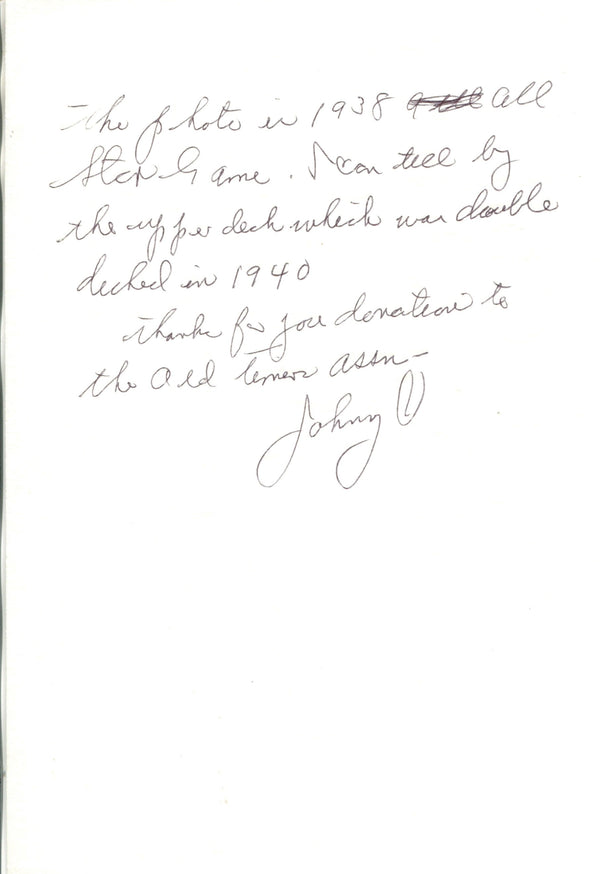 The photo is 1938 all
Star Game. I can tell by
the upper deck which was double
decked in 1940
Thanks for your donation to
the Old Timers Assn-
Johnny V